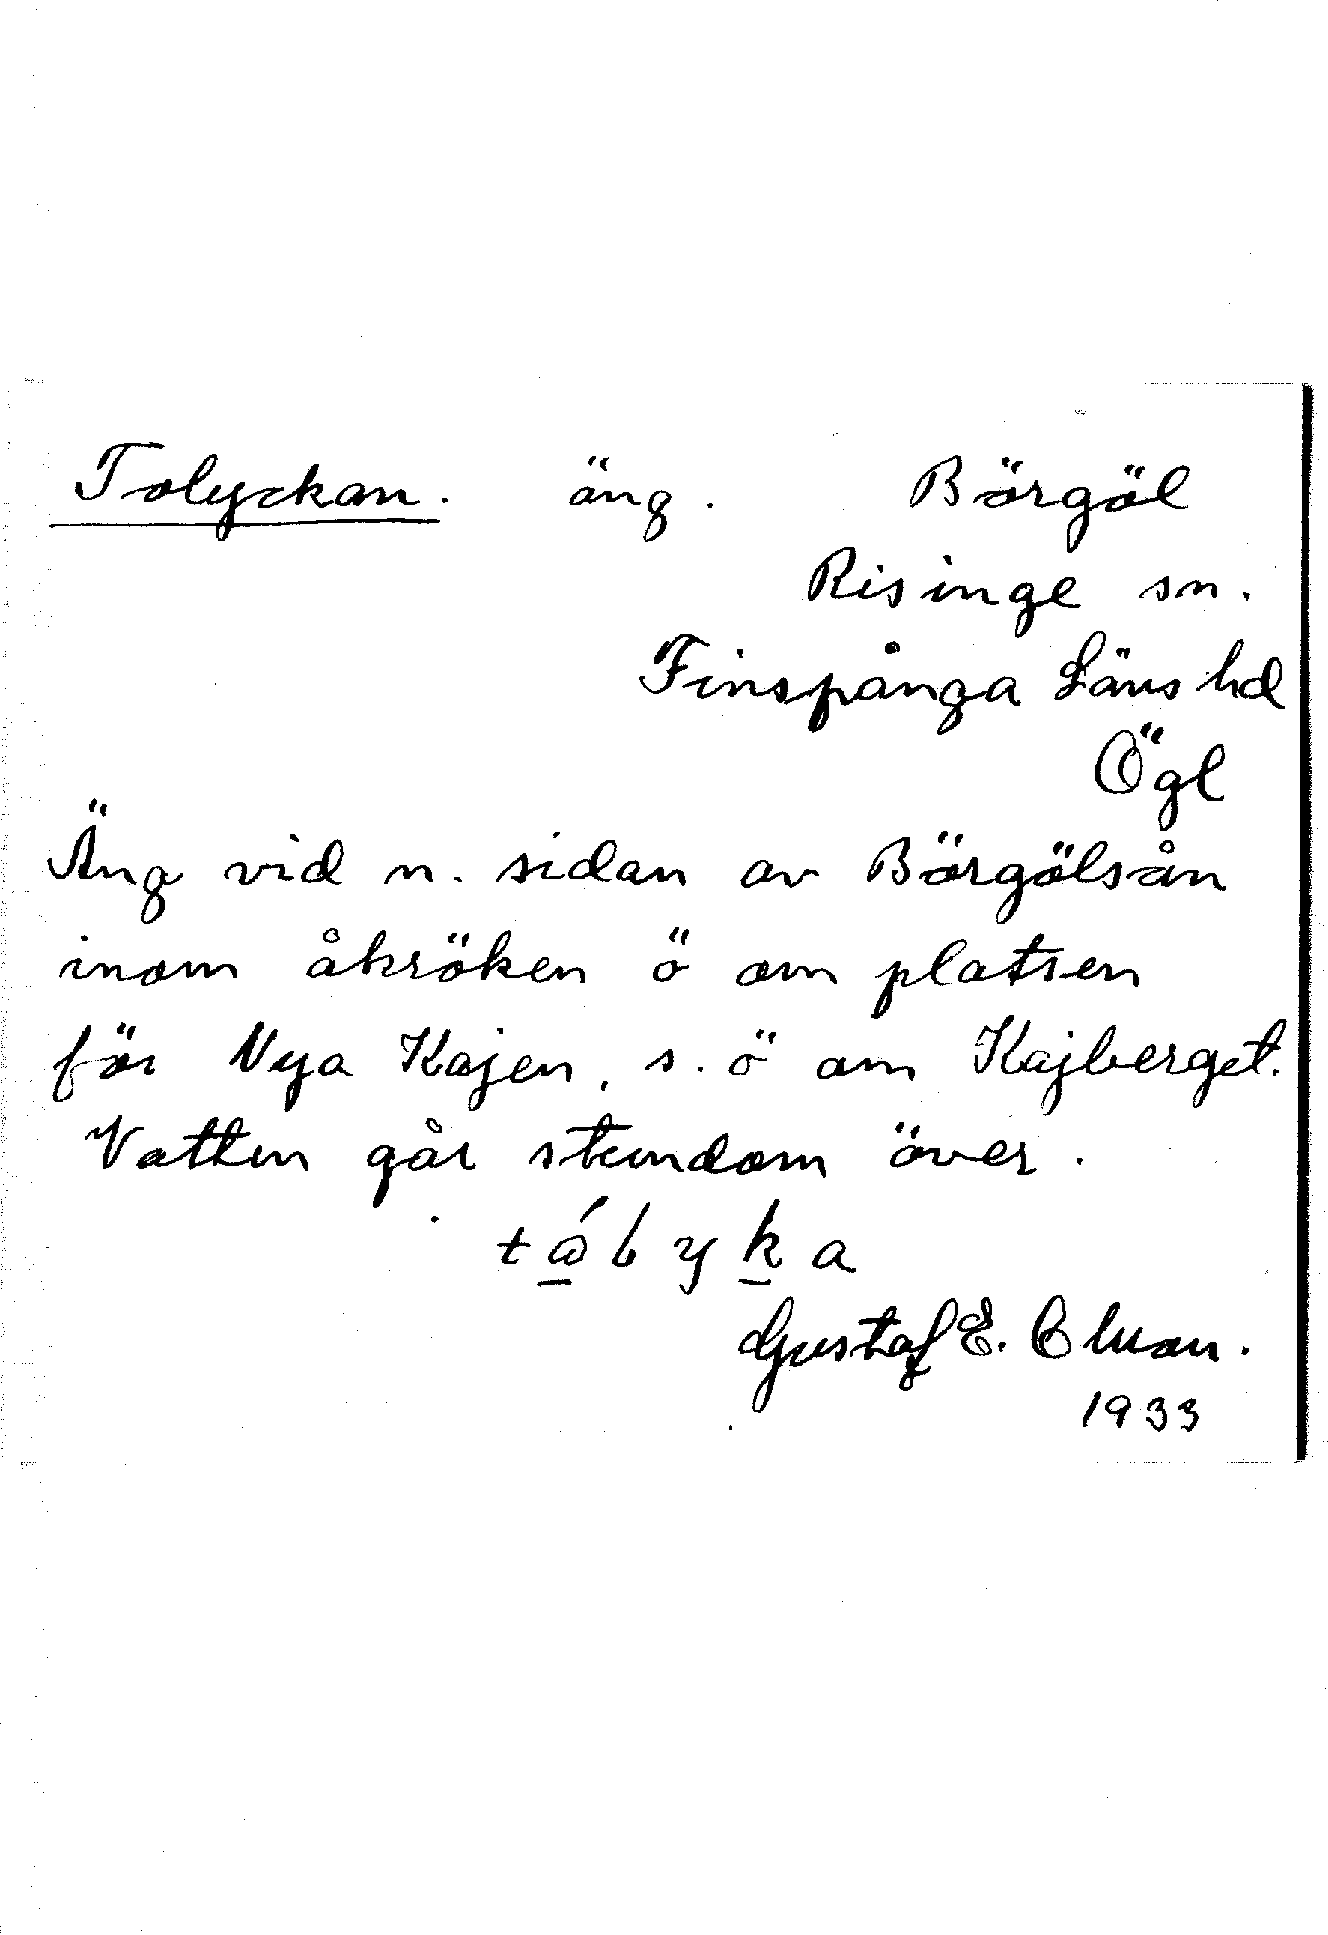 Tolyckan. äng. Börgöl
Risinge sn.
Finspånga Läns hd
Ögl
Äng vid n. sidan av Börgölsån
inom åkröken ö om platsen
för Nya Kajen, s. ö om Kajberget.
Vatten går stundom över.
Gustaf E.
1933